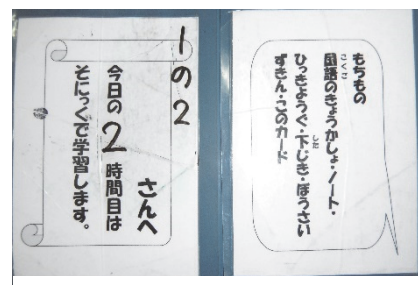 もちもの
国語のきょうかしょ・ノート・
こくご
ひっきようぐ・下じき・ぼうさい
した
ずきん・このカード
1の2
さんへ
今日の2時間目は
そにっくで学習します。